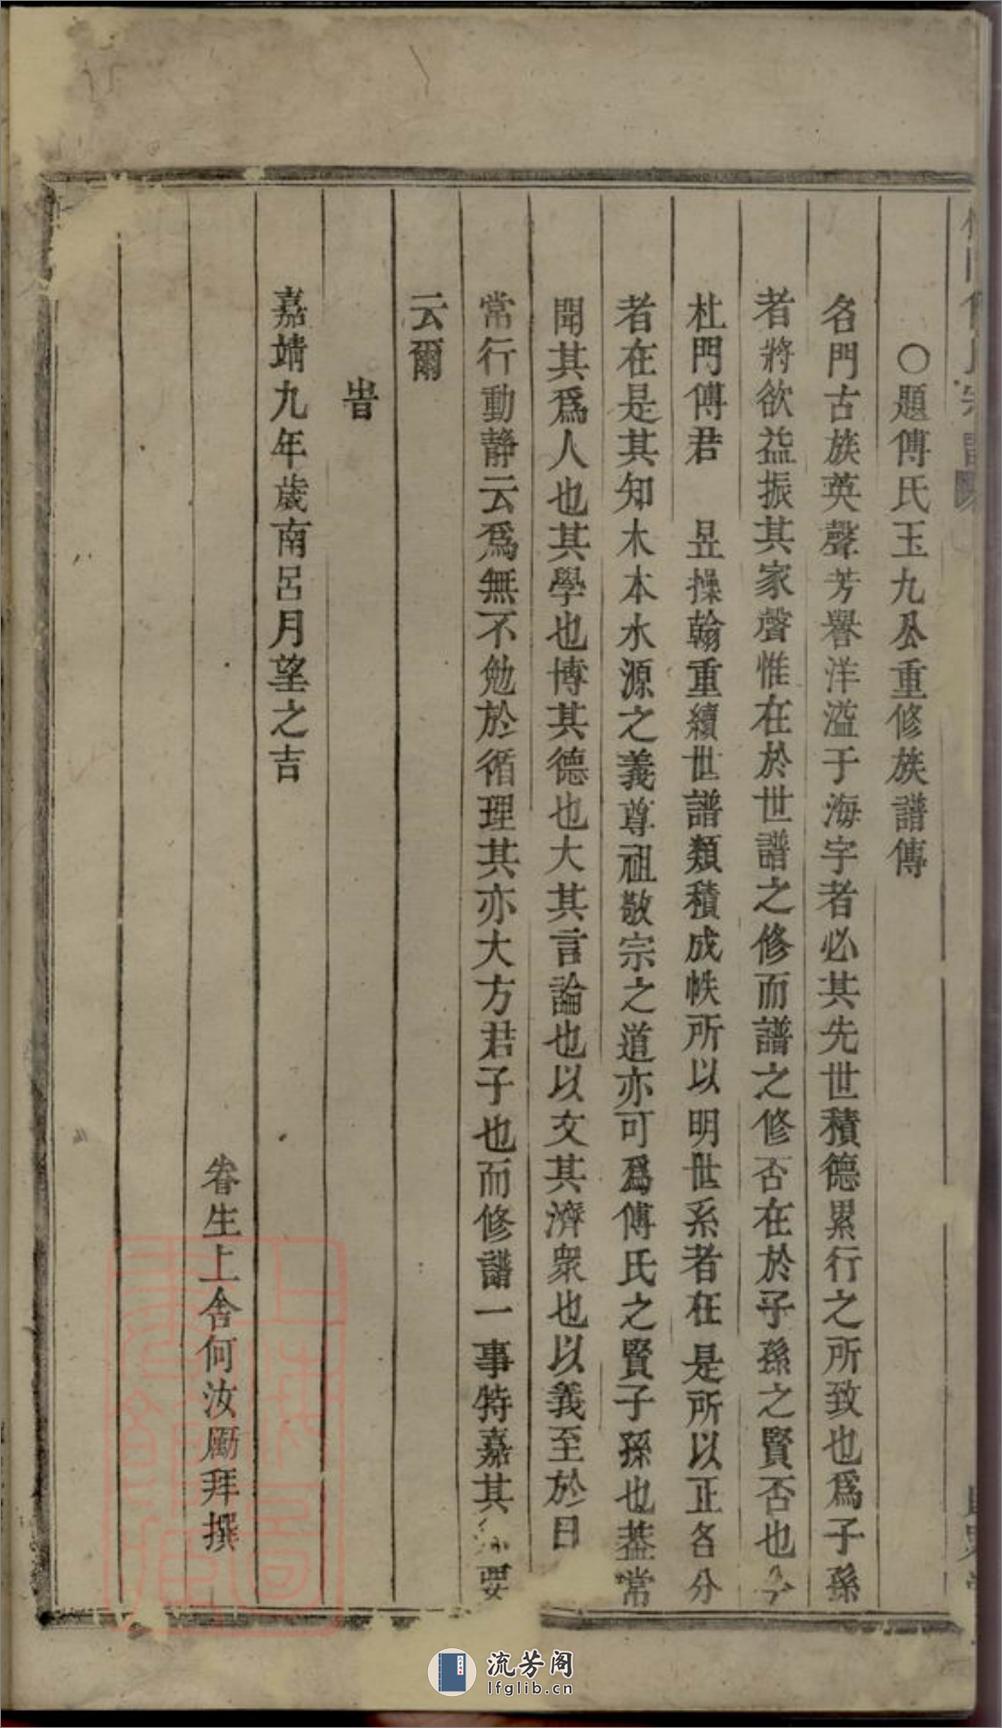 ○題傅氏玉九公重修族譜傳
名門古族英聲芳譽洋溢于海宇者必其先世積德累行之所致也爲子孫
者將欲益振其家聲惟在於世譜之修而譜之修否在於子孫之賢否也今
杜門傅君 昱操翰重續世譜類積成帙所以明世系者在是所以正名分
者在是其知木本水源之義尊祖敬宗之道亦可爲傅氏之賢子孫也葢常
聞其爲人也其學也博其德也大其言論也以文其濟衆也以義至於日
常行動静云爲無不勉於循理其亦大方君子也而修譜一事特嘉其要
云爾
旹
嘉靖九年歲南呂月望之吉
眷生上舍何汝勵拜撰
流芳阁
lfglib.cn